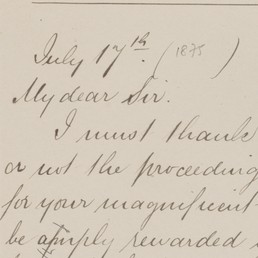 July 17th. (1875)
My dear Sir.
I must thank
or not the proceeding
for your magnificent
be amply rewarded